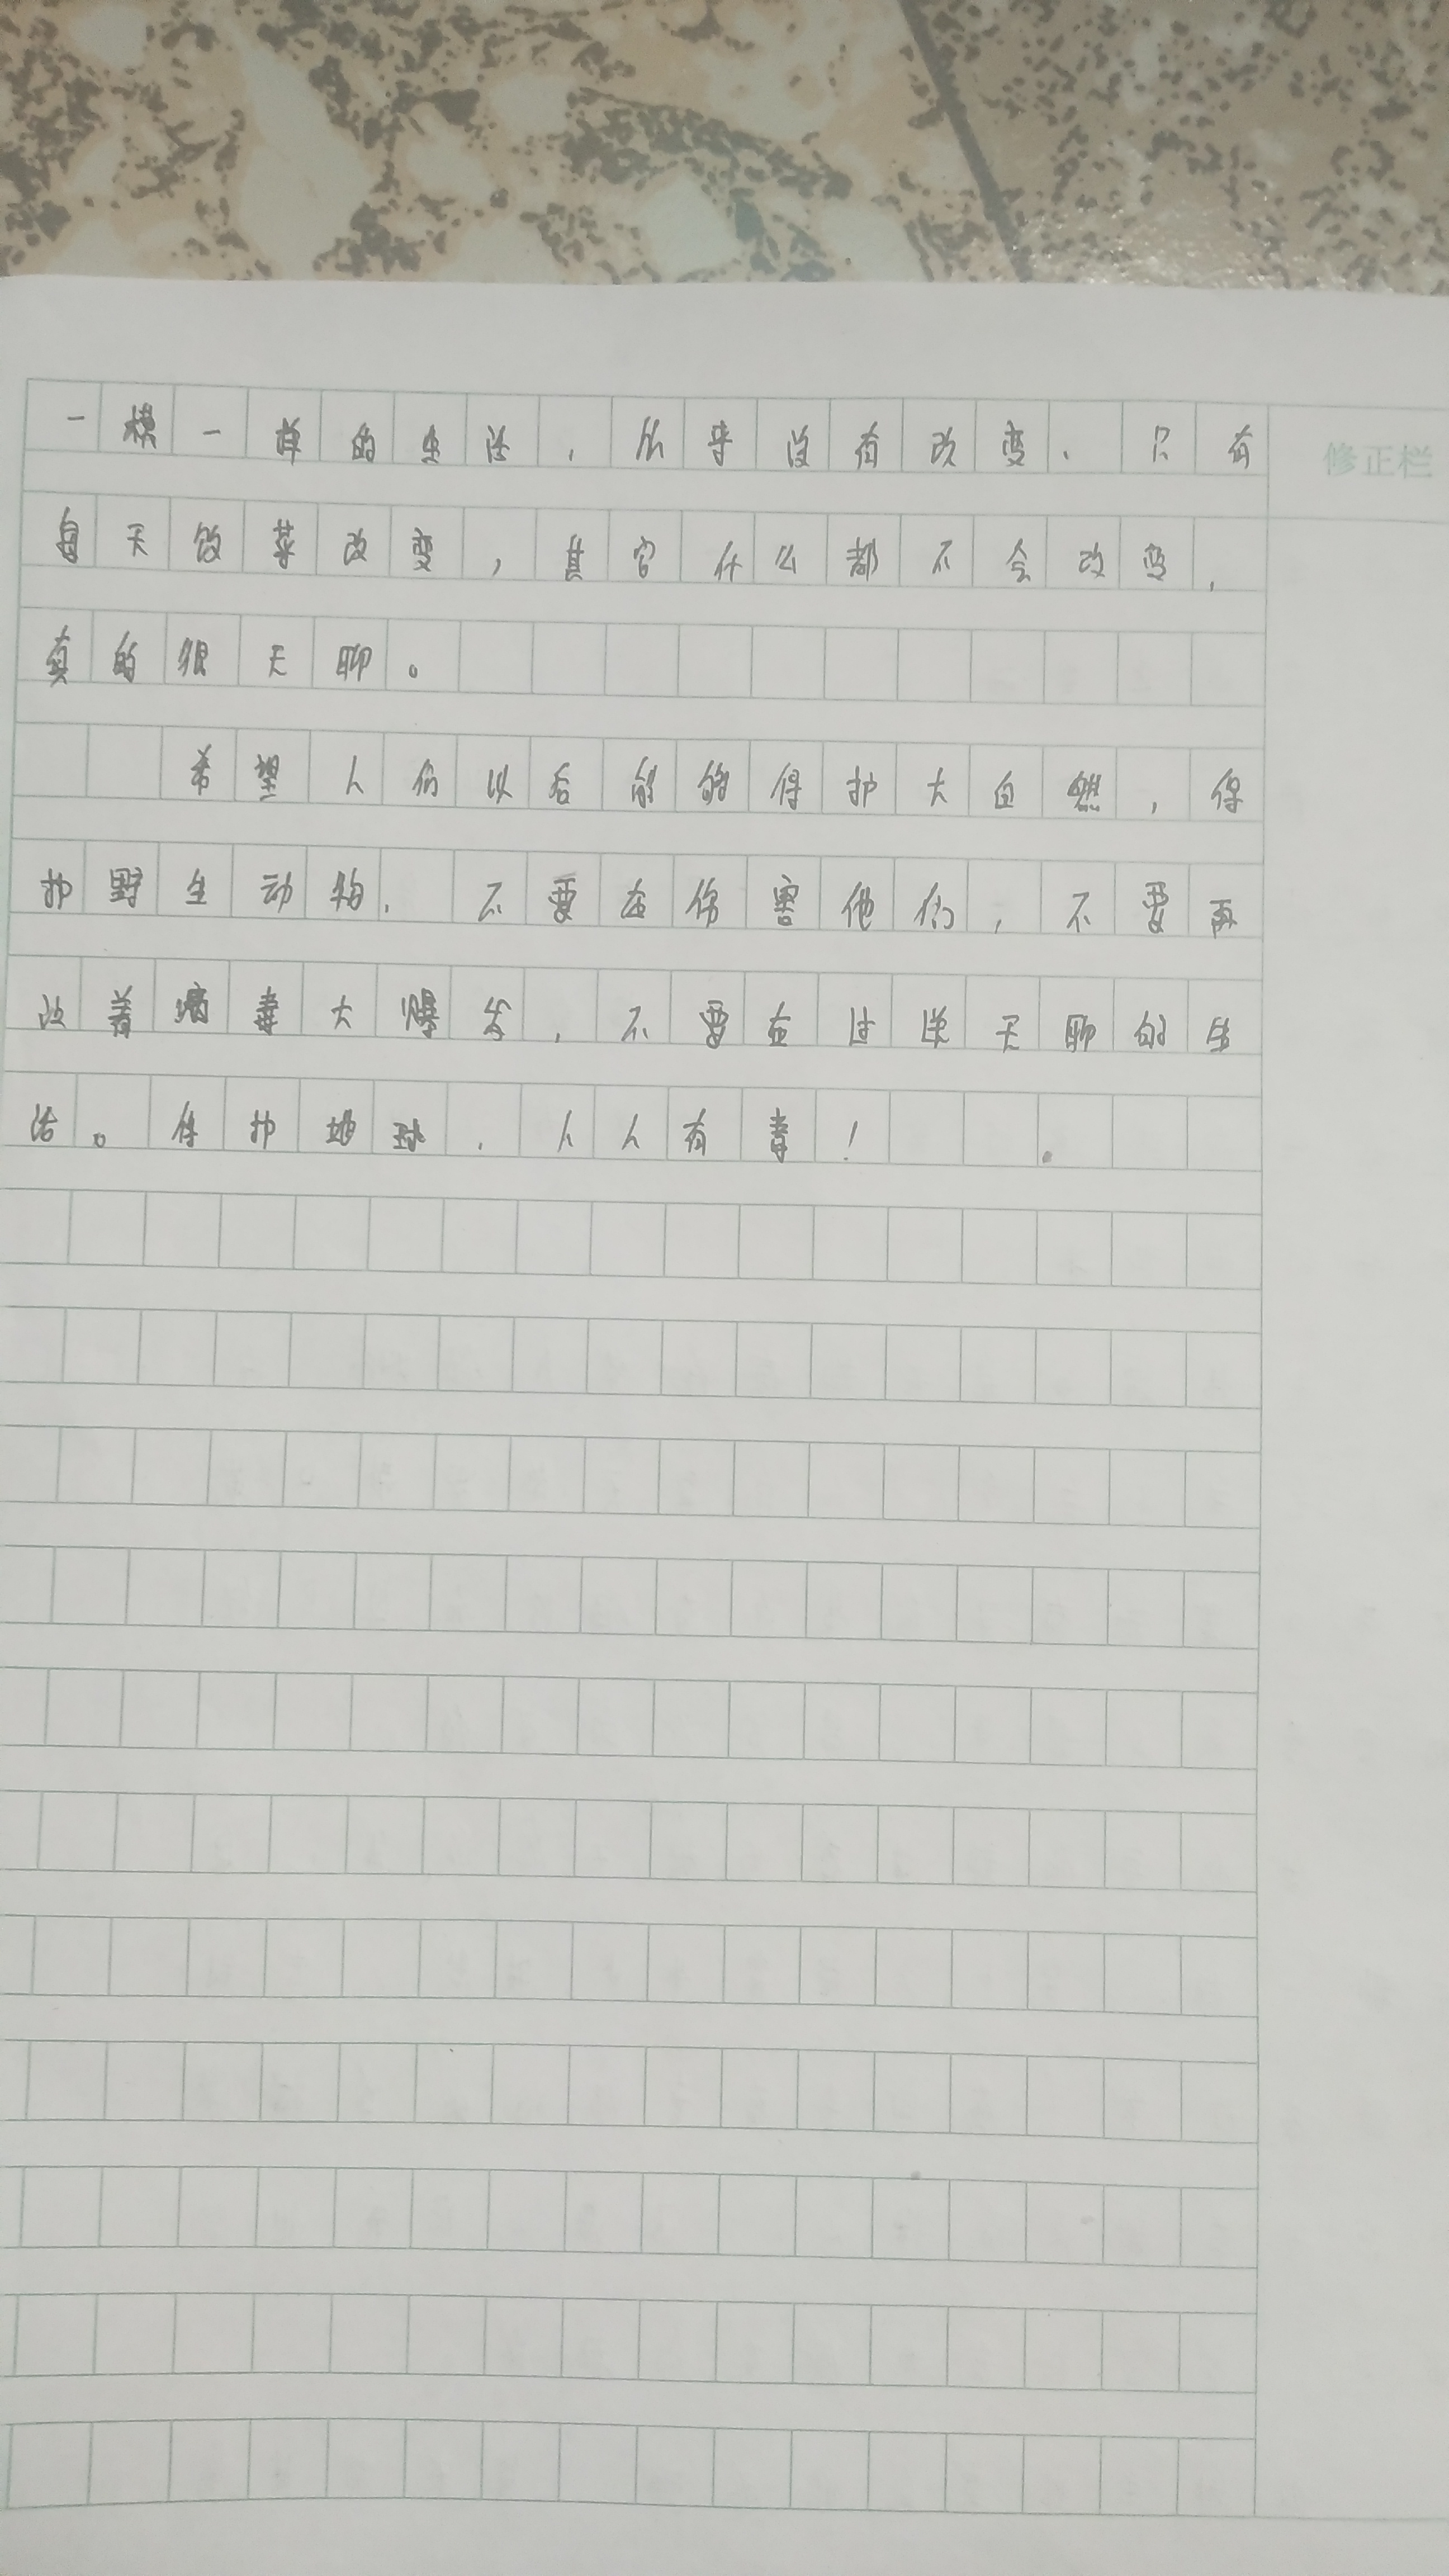 一模一样的生活，从来没有改变、只有
修正栏
每天饭菜改变，其它什么都不会改变，
真的很无聊。
希望人们以后能够保护大自然，保
护野生动物，不要在伤害他们，不要再
改着病毒大爆发，不要在过这无聊的生
活。保护地球，人人有责！